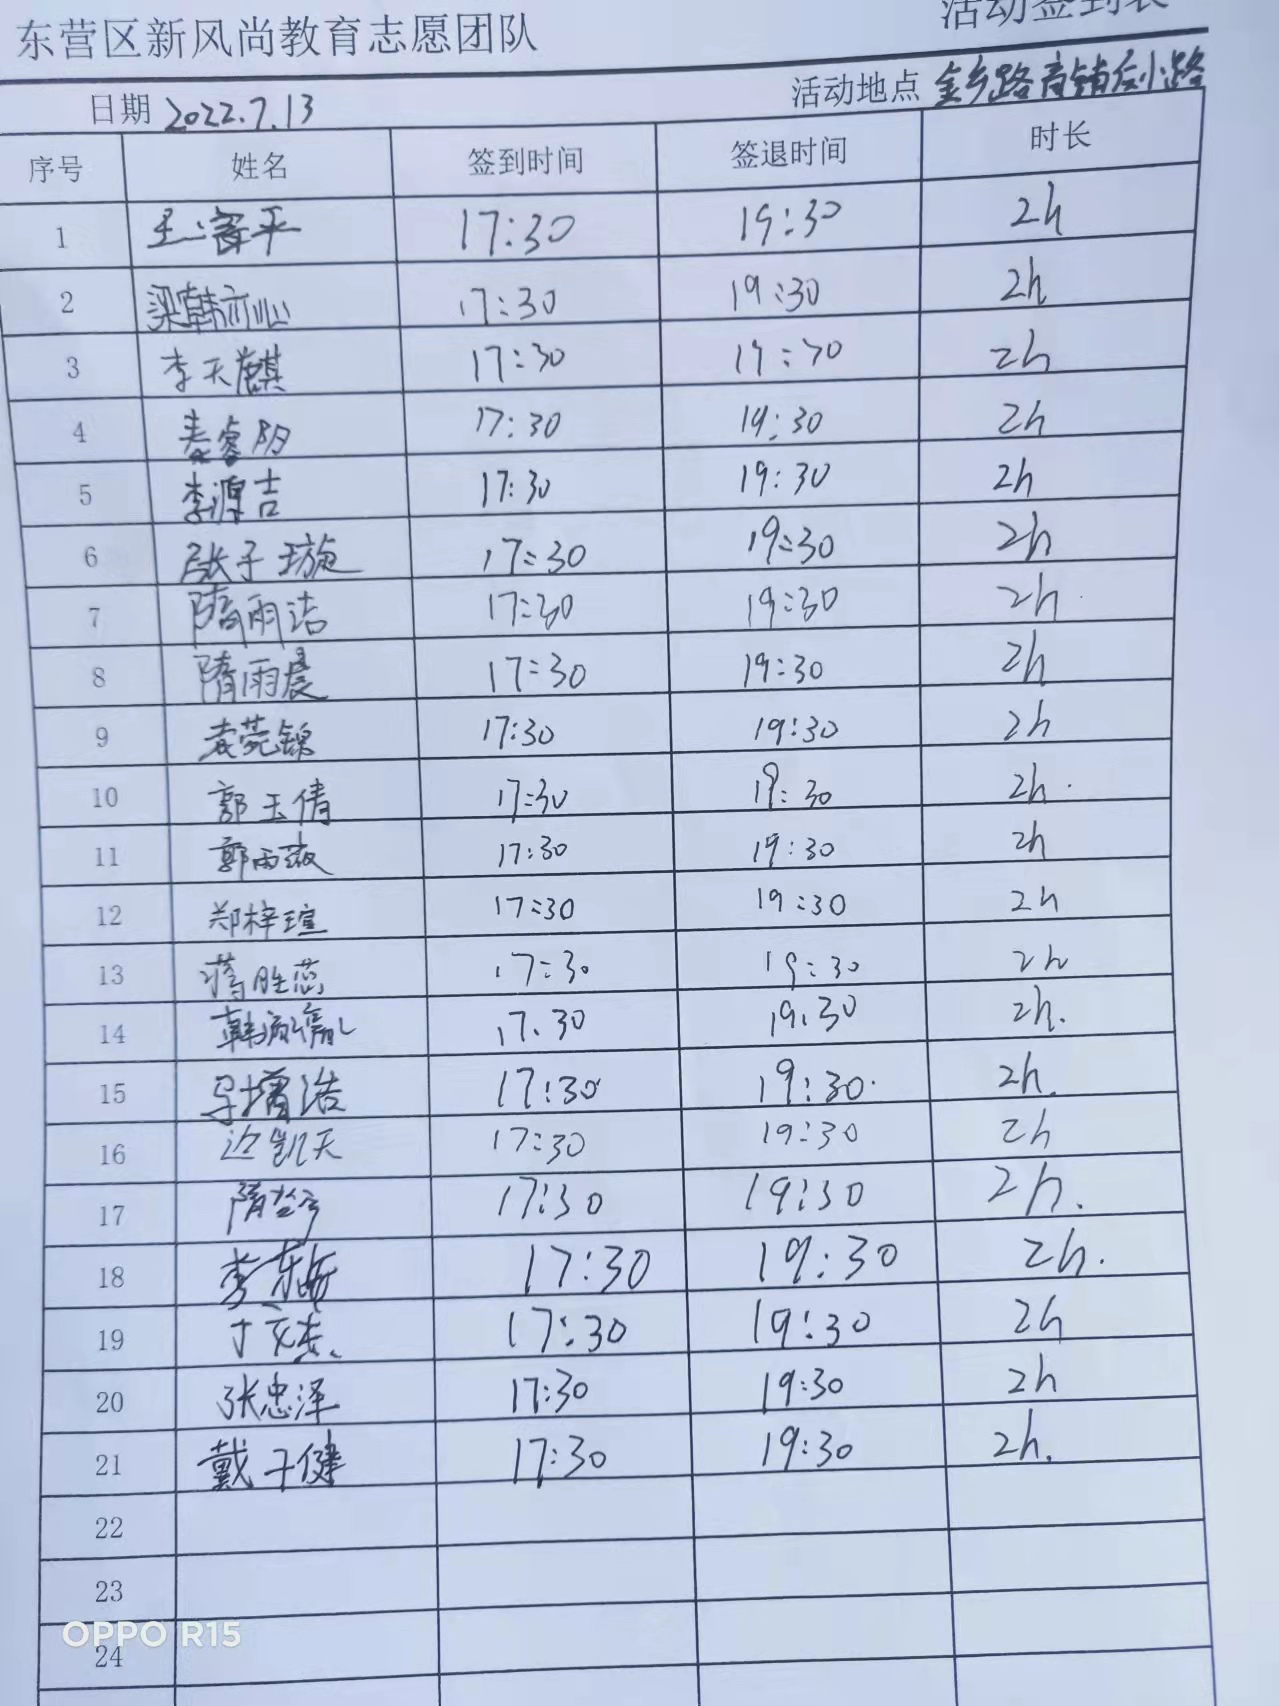 东营区新风尚教育志愿团队 活动签到表
日期 2022.7.13 活动地点 金乡路商铺后小路
序号 姓名 签到时间 签退时间 时长
1 平 17:30 19:30 2h
2 梁韩亦心 17:30 19:30 2h
3 李天麒 17:30 19:30 2h
4 秦睿阳 17:30 19:30 2h
5 李源吉 17:30 19:30 2h
6 张子璇 17:30 19:30 2h
7 隋雨洁 17:30 19:30 2h
8 隋雨晨 17:30 19:30 2h
9 袁菀锦 17:30 19:30 2h
10 郭玉倩 17:30 19:30 2h.
11 郭雨薇 17:30 19:30 2h
12 郑梓瑄 17:30 19:30 2h
13 蒋胜蕊 17:30 19:30 2h
14 韩 17.30 19.30 2h.
15 增浩 17:30 19:30. 2h.
16 边凯天 17:30 19:30 2h
17 隋 17:30 19:30 2h.
18 李东 17:30 19:30 2h.
19 丁文杰 17:30 19:30 2h
20 张忠泽 17:30 19:30 2h
21 戴子健 17:30 19:30 2h.
22
23
24
OPPO R15